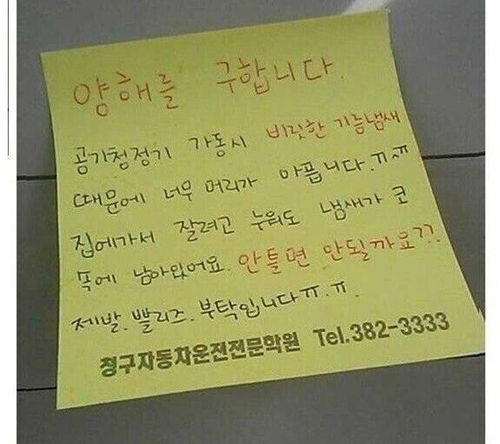 양해를 구합니다.
공기청정기 가동시 비릿한 기름냄새
때문에 너무 머리가 아픕니다.ㅠ.ㅠ
집에가서 잘려고 누워도 냄새가 코
속에 남아있어요. 안틀면 안될까요??.
제발.쁠리즈.부탁입니다ㅠ.ㅠ
청구자동차운전전문학원 Tel.382-3333